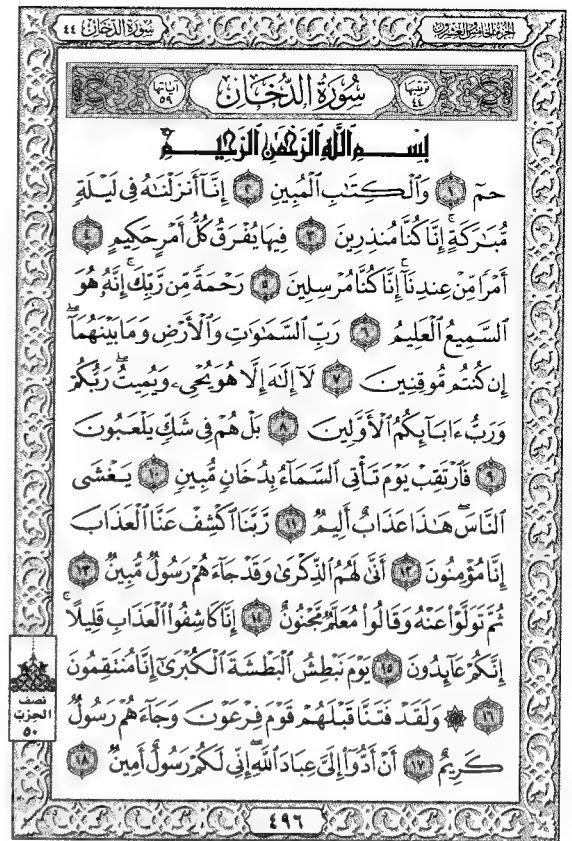 الجزء الخامس والعشرون
سورة الدخان ٤٤
ترتيبها ٤٤
سُورَةُ الدُّخَانِ
آياتها ٥٩
بِسْمِ اللَّهِ الرَّحْمَٰنِ الرَّحِيمِ
حمٓ ١ وَٱلْكِتَٰبِ ٱلْمُبِينِ ٢ إِنَّآ أَنزَلْنَٰهُ فِى لَيْلَةٍ
مُّبَٰرَكَةٍ ۚ إِنَّا كُنَّا مُنذِرِينَ ٣ فِيهَا يُفْرَقُ كُلُّ أَمْرٍ حَكِيمٍ ٤
أَمْرًا مِّنْ عِندِنَآ ۚ إِنَّا كُنَّا مُرْسِلِينَ ٥ رَحْمَةً مِّن رَّبِّكَ ۚ إِنَّهُۥ هُوَ
ٱلسَّمِيعُ ٱلْعَلِيمُ ٦ رَبِّ ٱلسَّمَٰوَٰتِ وَٱلْأَرْضِ وَمَا بَيْنَهُمَآ ۖ
إِن كُنتُم مُّوقِنِينَ ٧ لَآ إِلَٰهَ إِلَّا هُوَ يُحْىِۦ وَيُمِيتُ ۖ رَبُّكُمْ
وَرَبُّ ءَابَآئِكُمُ ٱلْأَوَّلِينَ ٨ بَلْ هُمْ فِى شَكٍّ يَلْعَبُونَ
٩ فَٱرْتَقِبْ يَوْمَ تَأْتِى ٱلسَّمَآءُ بِدُخَانٍ مُّبِينٍ ١٠ يَغْشَى
ٱلنَّاسَ ۖ هَٰذَا عَذَابٌ أَلِيمٌ ١١ رَّبَّنَا ٱكْشِفْ عَنَّا ٱلْعَذَابَ
إِنَّا مُؤْمِنُونَ ١٢ أَنَّىٰ لَهُمُ ٱلذِّكْرَىٰ وَقَدْ جَآءَهُمْ رَسُولٌ مُّبِينٌ ١٣
ثُمَّ تَوَلَّوْا۟ عَنْهُ وَقَالُوا۟ مُعَلَّمٌ مَّجْنُونٌ ١٤ إِنَّا كَاشِفُوا۟ ٱلْعَذَابِ قَلِيلًا ۚ
إِنَّكُمْ عَآئِدُونَ ١٥ يَوْمَ نَبْطِشُ ٱلْبَطْشَةَ ٱلْكُبْرَىٰٓ إِنَّا مُنتَقِمُونَ
١٦ ۞ وَلَقَدْ فَتَنَّا قَبْلَهُمْ قَوْمَ فِرْعَوْنَ وَجَآءَهُمْ رَسُولٌ
كَرِيمٌ ١٧ أَنْ أَدُّوٓا۟ إِلَىَّ عِبَادَ ٱللَّهِ ۖ إِنِّى لَكُمْ رَسُولٌ أَمِينٌ ١٨
نصف
الحزب
٥٠
٤٩٦